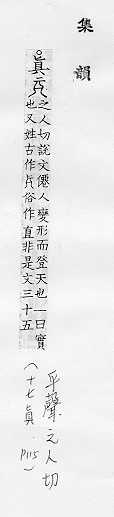 集韻
○眞
之人切說文僊人變形而登天也一曰實
也又姓古作俗作真非是文三十五
平聲之人切
(十七真．P115)